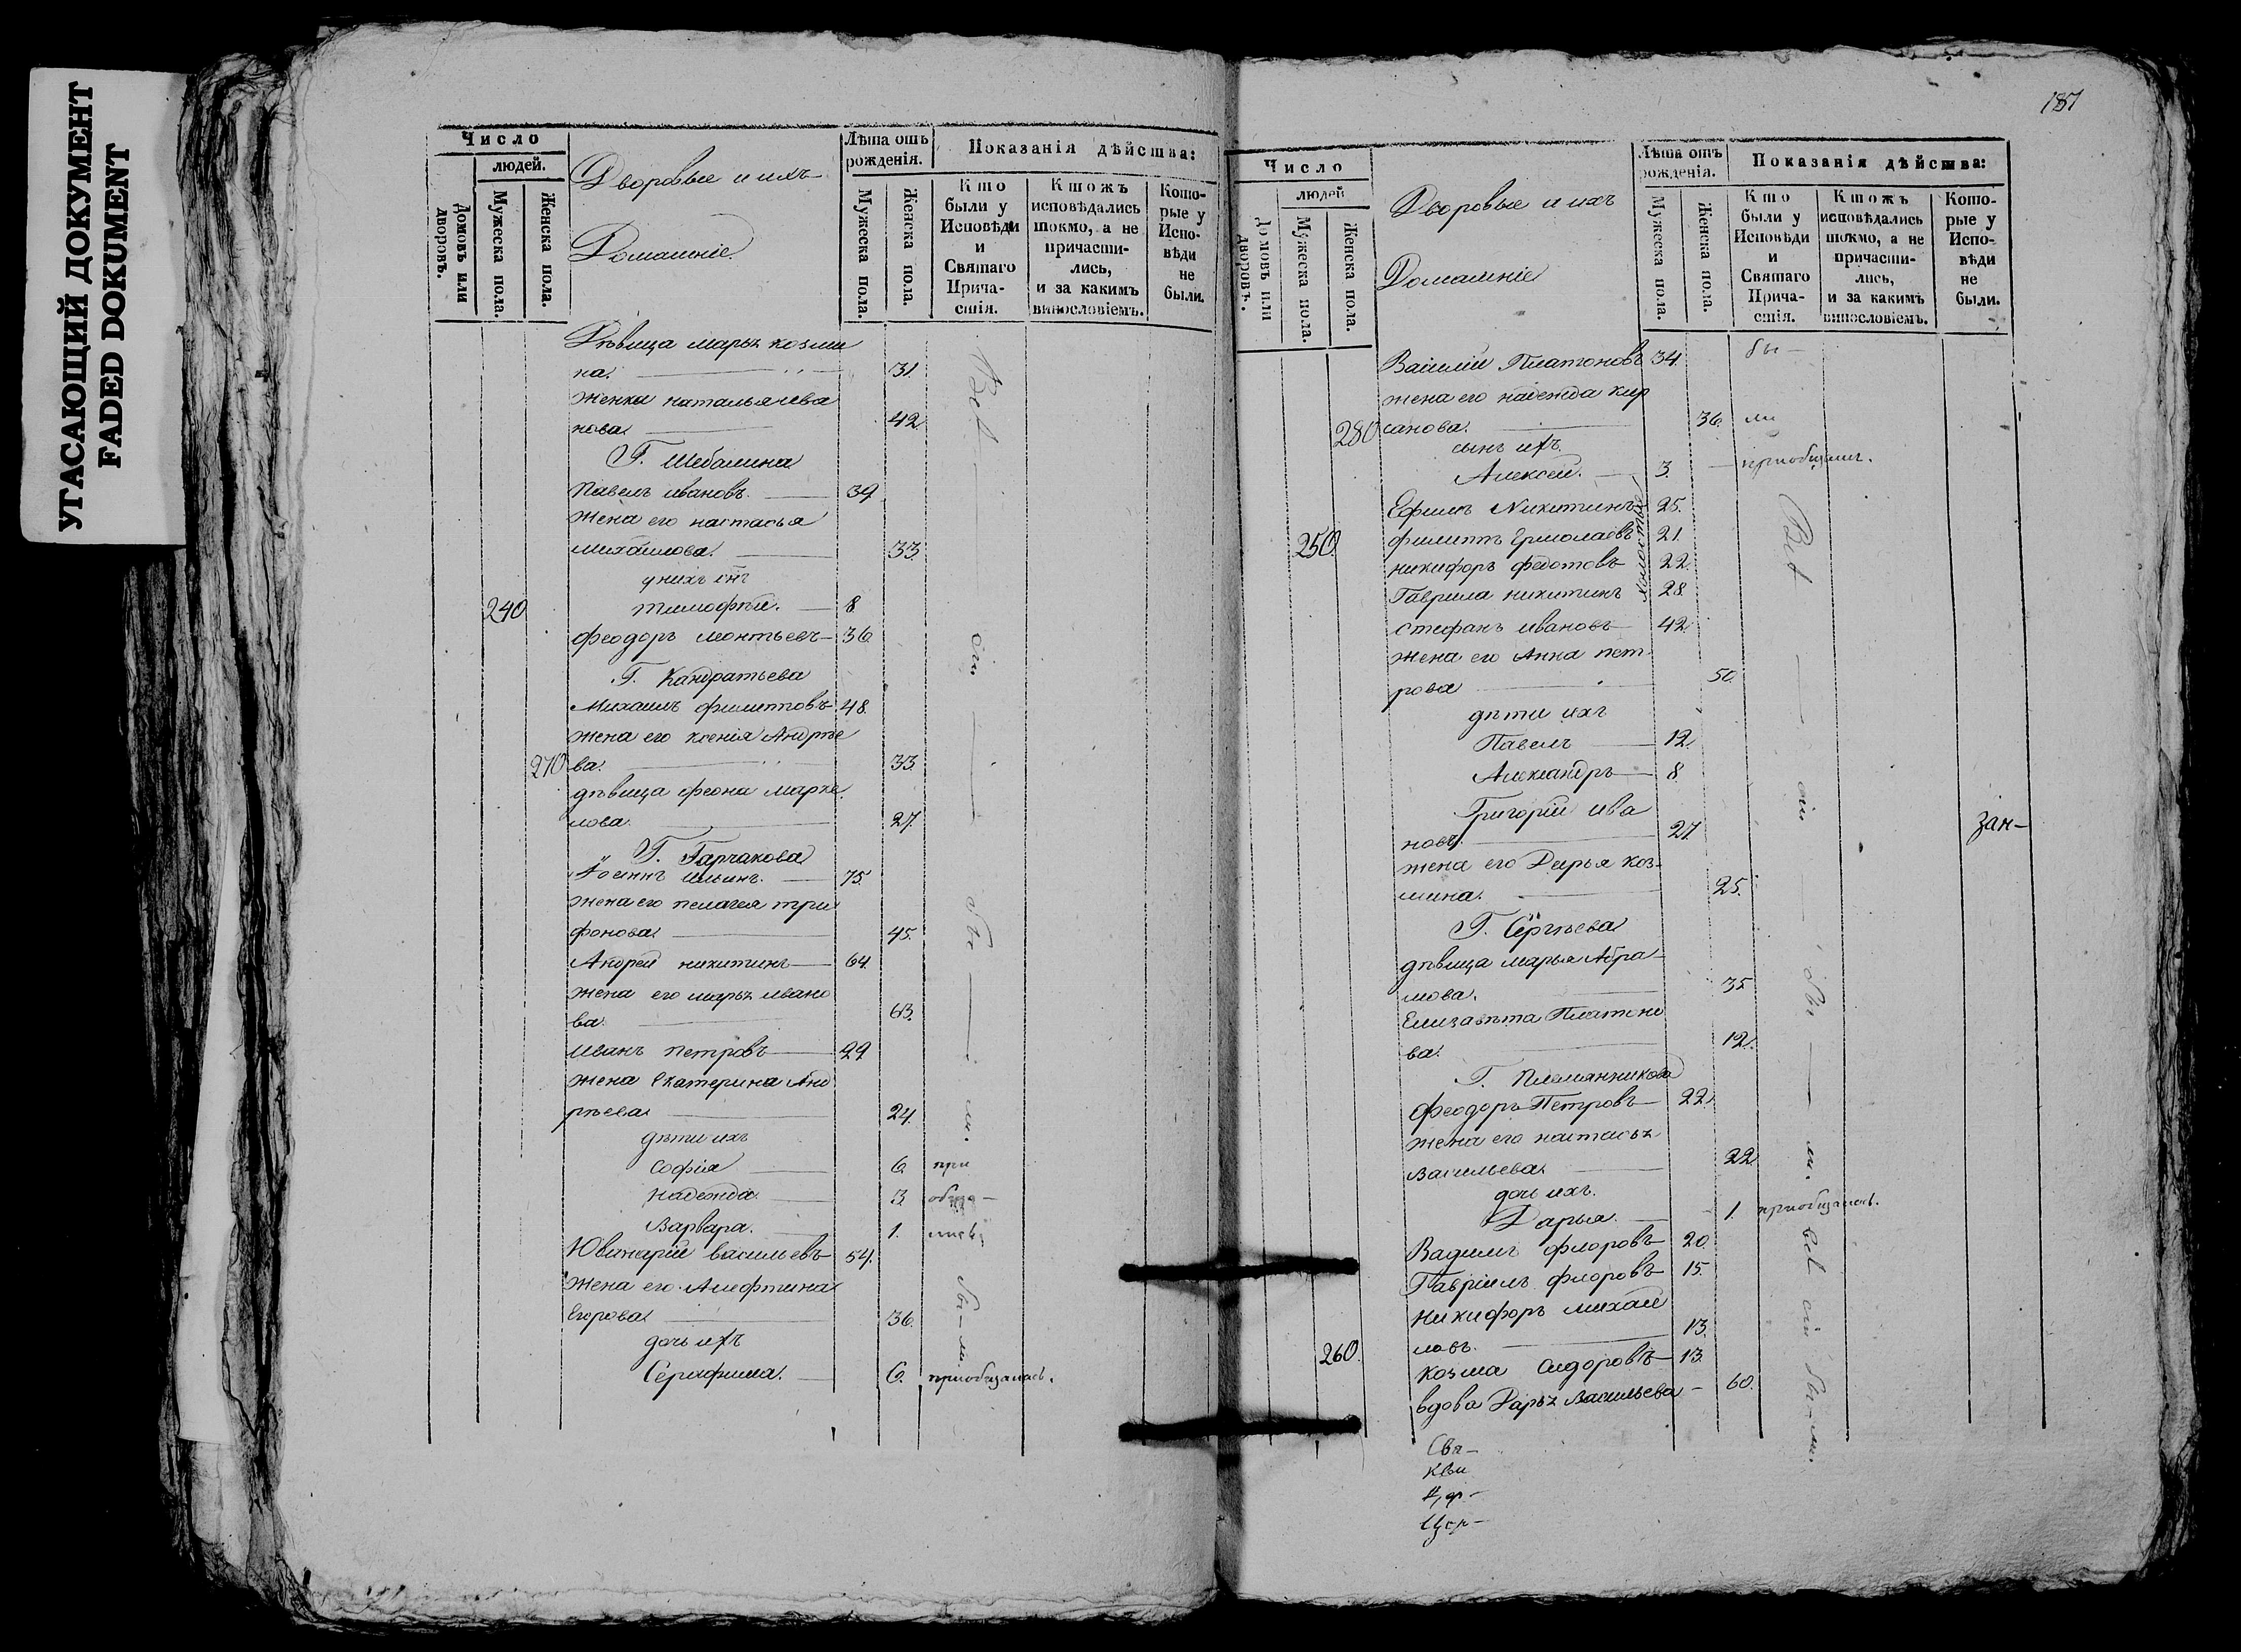 УГАСАЮЩИЙ ДОКУМЕНТ
FADED DOKUMENT
Число
людей.
Домовъ или дворовъ.
Мужеска пола.
Женска пола.
Дворовые и ихъ
Домашніе.
Лѣта отъ рожденія.
Мужеска пола.
Женска пола.
Показанія дѣйства:
Кто были у Исповѣди и Святаго Причастія.
Ктожъ исповѣдались токмо, а не причастились, и за какимъ винословіемъ.
Которые у Исповѣди не были.
Дѣвица марья козми
на. 31.
женка наталья ива
нова. 42
Г. Шебалина
Павелъ ивановъ. 39
жена его настасья
михаилова. 33
у нихъ сынъ
240 тимофѣй. 8
феодоръ леонтьевъ 36
Г. Кандратьева
Михаилъ филипповъ 48
жена его ксенія Андрѣе
270 ва. 33
дѣвица феона марке
лова. 27
Г. Гарчакова
Іоаннъ ильинъ. 75
жена его пелагея три
фонова. 45
Андрей никитинъ 64
жена его марья ивано
ва. 63
Иванъ петровъ 29
жена Екатерина Анд
рѣева 24
дѣти ихъ
софія 6 при
надежда. 3 обща
Варвара. 1. лись
Ювинарій васильевъ 54
жена его Алефтина
Егорова 36
дочь ихъ
Серафима. 6. приобщалась.
Всѣ
ои.
бы
ли.
бы ли.
187
Число
людей
Домовъ или дворовъ.
Мужеска пола.
Женска пола.
Дворовые и ихъ
Домашніе
Лѣта отъ рожденія.
Мужеска пола.
Женска пола.
Показанія дѣйства:
Кто были у Исповѣди и Святаго Причастія.
Ктожъ исповѣдались токмо, а не причастились, и за какимъ винословіемъ.
Которые у Исповѣди не были.
Василій Платоновъ 34. бы
жена его надежда кир
280 санова. 36. ли
сынъ ихъ.
Алексей. 3 приобщалъ.
Ефимъ Никитинъ 25.
250 филиппъ Ермолаевъ 21
никифоръ федотовъ 22
Гаврила никитинъ 28
холостые
стефанъ ивановъ 42
жена его Анна пет
рова 50
дѣти ихъ
Павелъ 12
Александръ 8
Григорій ива
новъ. 27
жена его Дарья коз
мина. 25.
Г. Сергѣева
дѣвица марья Абра
мова. 35
Елизавѣта Платоно
ва. 12
Г. Племянникова
Феодоръ Петровъ 22
жена его настасья
васильева. 22
дочь ихъ.
Дарья. 1. приобщалась.
Вадимъ флоровъ 20
Гавріилъ флоровъ 15
никифоръ михаи
260. ловъ. 13
козма сидоровъ 13
вдова Дарья васильева 60
Всѣ
ои
бы
ли.
всѣ сіи были.
зан-
Свя-